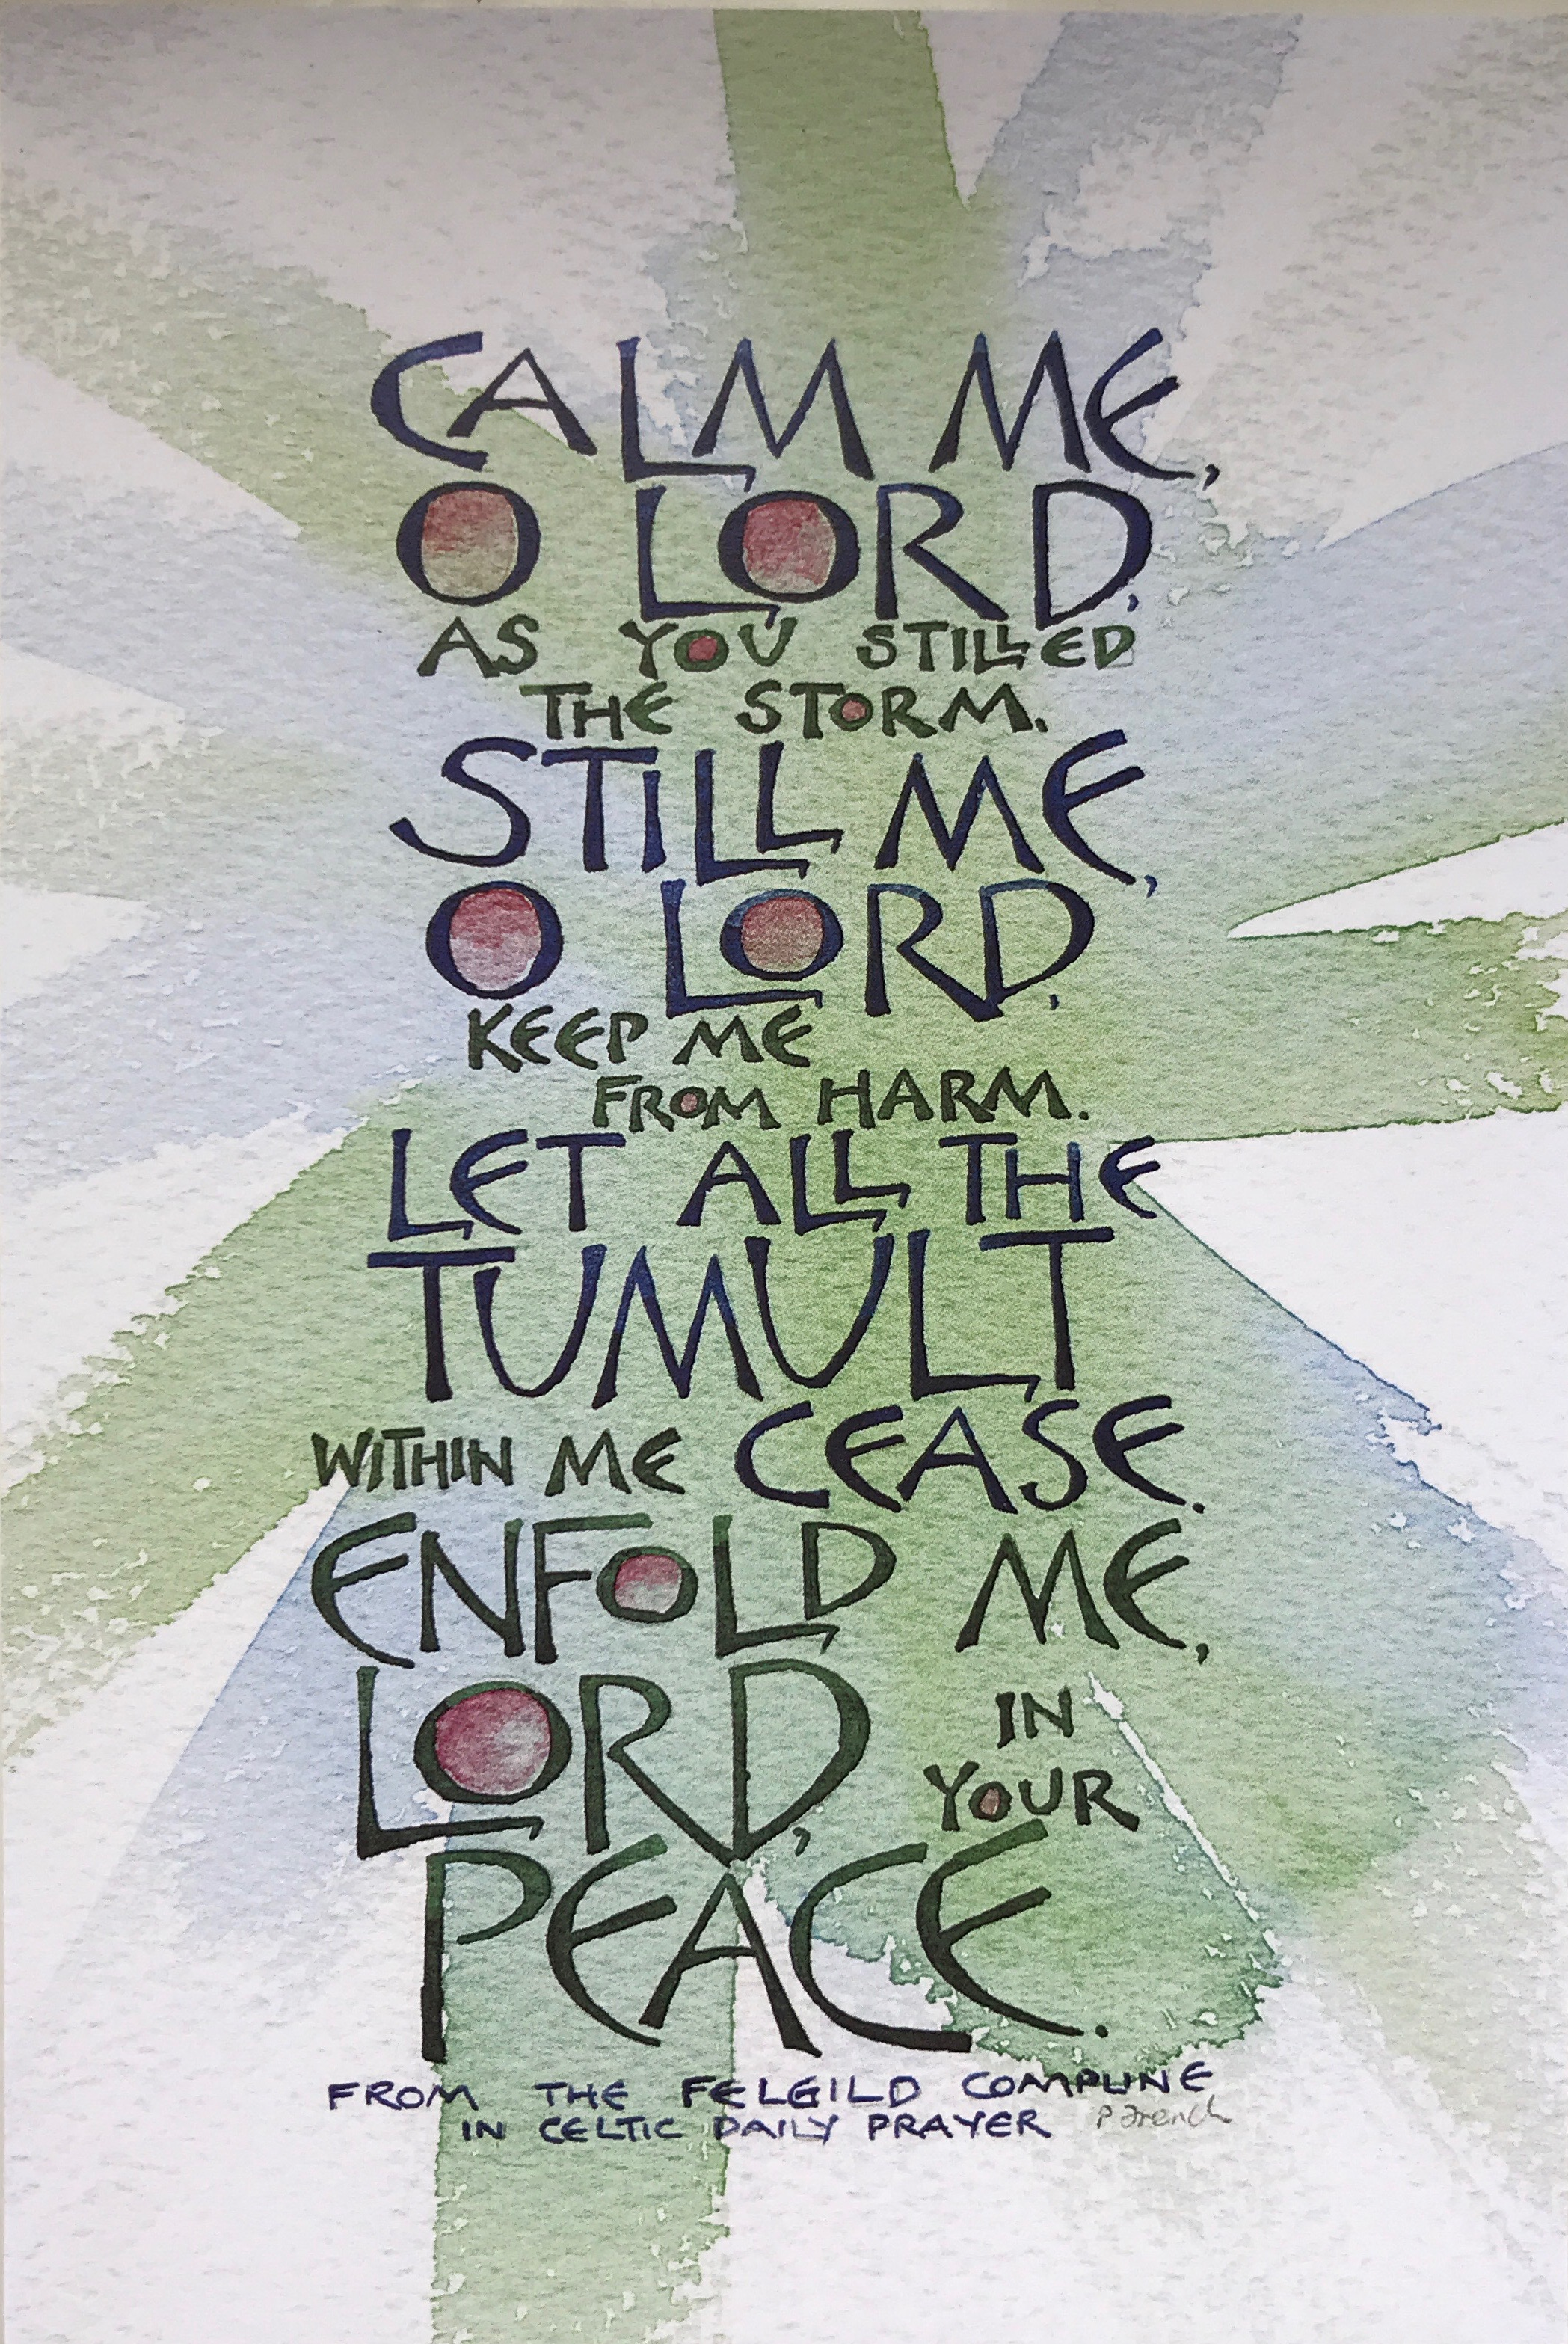 CALM ME,
O LORD,
AS YOU STILLED
THE STORM.
STILL ME,
O LORD,
KEEP ME
FROM HARM.
LET ALL THE
TUMULT
WITHIN ME CEASE.
ENFOLD ME,
LORD,
IN
YOUR
PEACE.
FROM THE FELGILD COMPLINE
IN CELTIC DAILY PRAYER P French